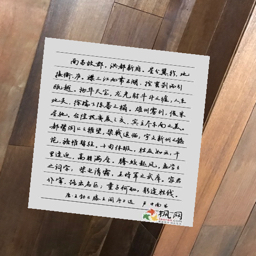 南昌故郡，洪都新府。星分翼轸，地
接衡庐。襟三江而带五湖，控蛮荆而引
瓯越。物华天宝，龙光射斗牛之墟；人杰
地灵，徐孺下陈蕃之榻。雄州雾列，俊采
星驰。台隍枕夷夏之交，宾主尽东南之美。
都督阎公之雅望，棨戟遥临；宇文新州之懿
范，襜帷暂驻。十旬休暇，胜友如云；千
里逢迎，高朋满座。腾蛟起凤，孟学士
之词宗；紫电清霜，王将军之武库。家君
作宰，路出名区；童子何知，躬逢胜饯。
王勃滕王阁序
枫网